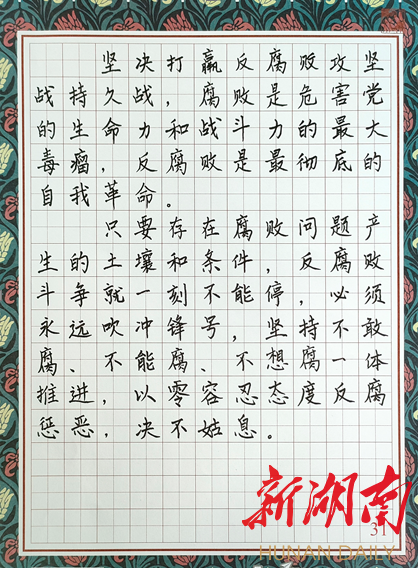 坚决打赢反腐败攻坚
战持久战,腐败是危害党
的生命力和战斗力的最大
毒瘤,反腐败是最彻底的
自我革命。
只要存在腐败问题产
生的土壤和条件,反腐败
斗争就一刻不能停,必须
永远吹冲锋号,坚持不敢
腐、不能腐、不想腐一体
推进,以零容忍态度反腐
惩恶,决不姑息。
新湖南
31
HUNAN DAILY